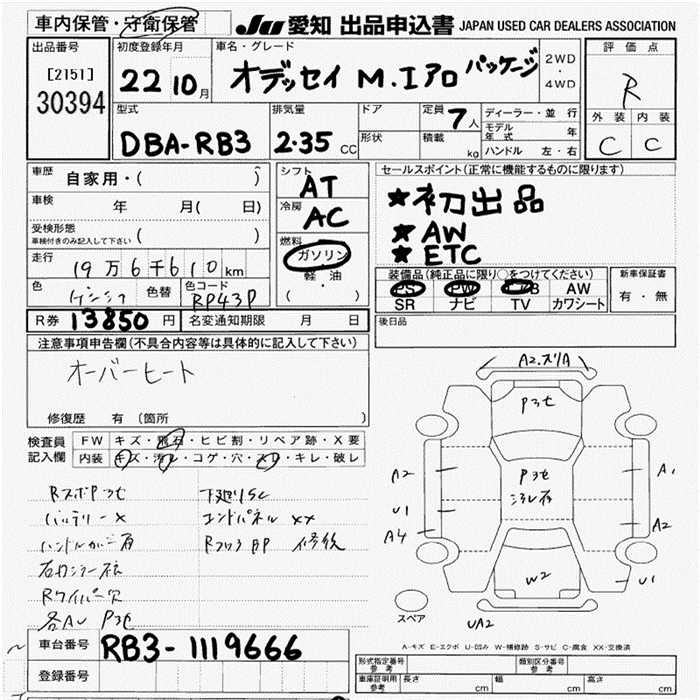 車内保管・守衛保管
JU 愛知 出品申込書 JAPAN USED CAR DEALERS ASSOCIATION
出品番号
[2151]
30394
初度登録年月
22 10月
車名・グレード
オデッセイ M.Iアロ パッケージ
2WD
・
4WD
評価点
R
外装 内装
C C
型式
DBA-RB3
排気量
2.35 CC
ドア
形状
定員 7人
積載 kg
ディーラー・並行
モデル年式 年
ハンドル 左・右
車歴 自家用・( )
車検 年 月( 日)
受検形態
車検付きのみ記入して下さい ( )
走行 19万6千610km
色
色替
色コード
RP43P
シフト AT
冷房 AC
燃料
ガソリン
軽・油
( )
セールスポイント(正常に機能するものに限ります)
★初出品
★AW
★ETC
装備品(純正品に限り○をつけてください)
PS PW AW
SR ナビ TV カワシート
新車保証書
有・無
R券 13850円
名変通知期限 月 日
後日品
注意事項申告欄(不具合内容等は具体的に記入して下さい)
オーバーヒート
修復歴 有(箇所 )
検査員記入欄
FW キズ・飛石・ヒビ割・リペア跡・X要
内装 キズ・汚れ・コゲ・穴・スレ・キレ・破レ
バッテリーX
コンドパネル XX
Rワイパー欠
A2.スリA
P3セ
A2
U1
A4
A1
A2
U1
W2
UA2
スペア
A-キズ E-エクボ U-凹み W-補修跡 S-サビ C-腐食 XX-交換済
車台番号 RB3-1119666
登録番号
型式指定番号 参考
類別区分番号 参考
車庫証明用 参考
長さ cm 幅 cm 高さ cm